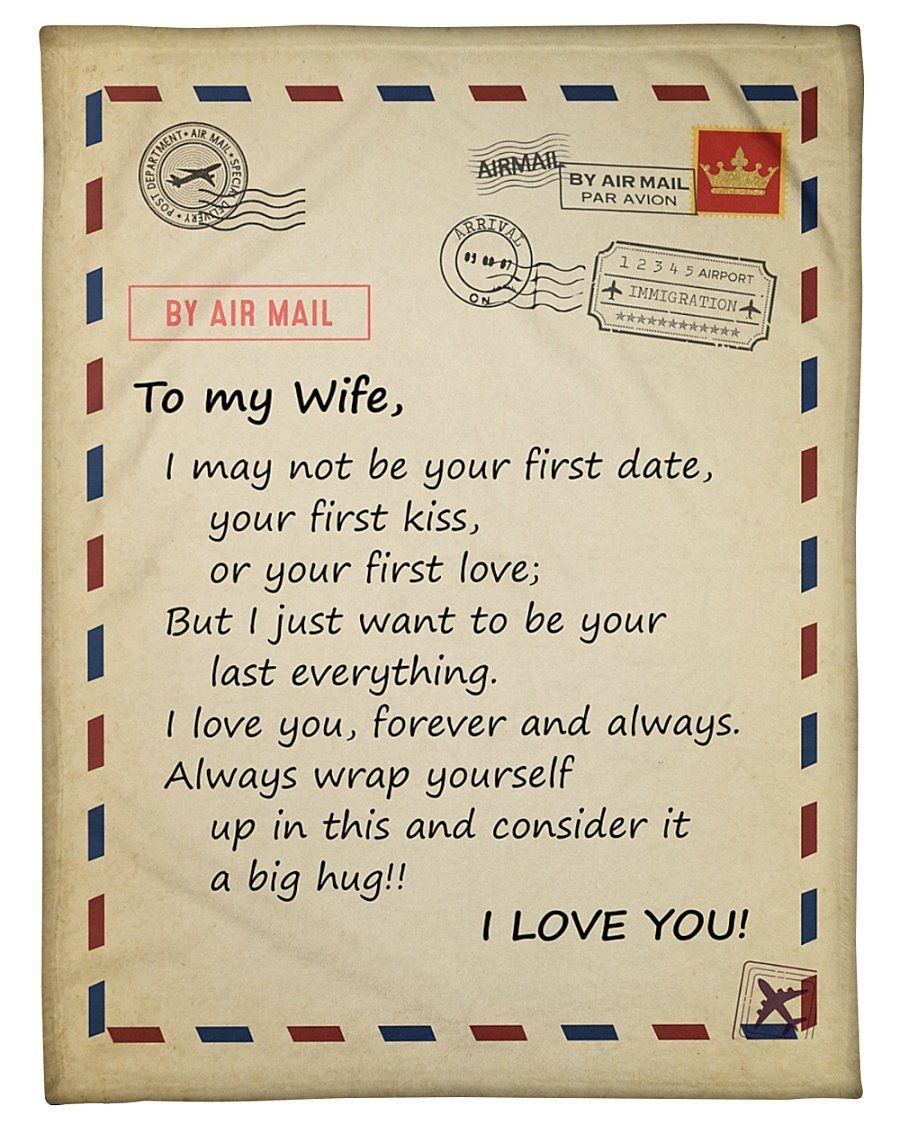 POST DEPARTMENT ★ AIR MAIL ★ SPECIAL DELIVERY ★
AIRMAIL
BY AIR MAIL
PAR AVION
ARRIVAL
ON
1 2 3 4 5 AIRPORT
IMMIGRATION
★★★★★★★★★★★★
BY AIR MAIL
To my Wife,
I may not be your first date,
your first kiss,
or your first love;
But I just want to be your
last everything.
I love you, forever and always.
Always wrap yourself
up in this and consider it
a big hug!!
I LOVE YOU!